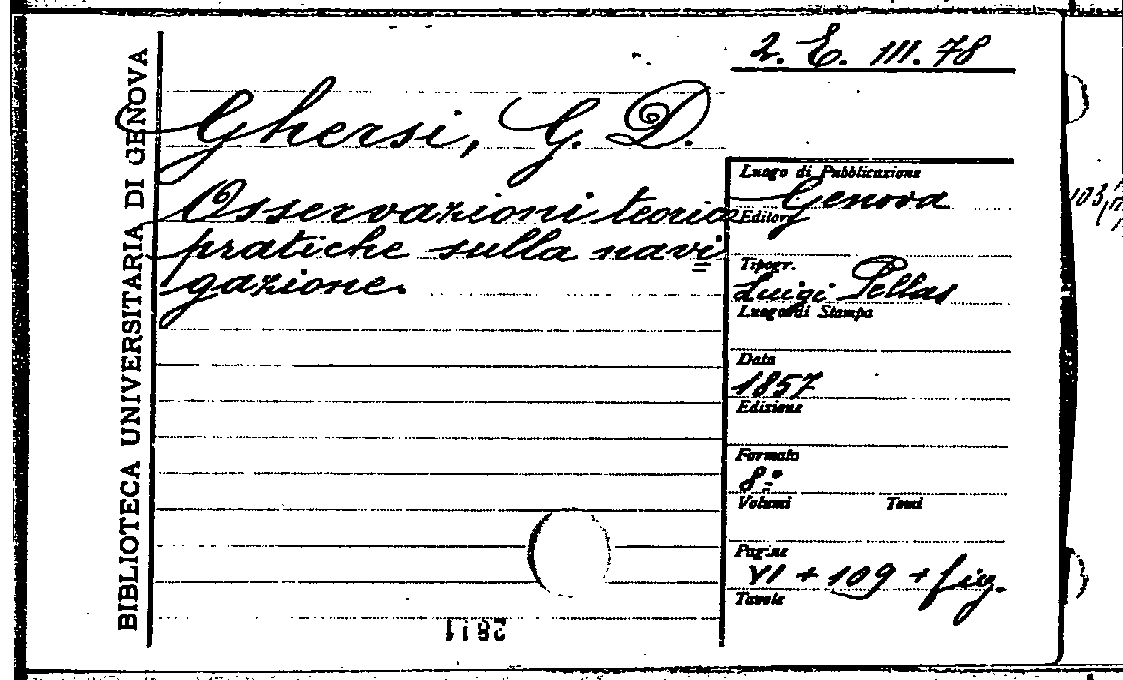 BIBLIOTECA UNIVERSITARIA DI GENOVA
2. E. III. 78
Ghersi, G. D.
Osservazioni teorico
pratiche sulla navi
gazione.
Luogo di Pubblicazione
Genova
Editore
Tipogr.
Luigi Pellas
Luogo di Stampa
Data
1857
Edizione
Formato
8º
Volumi Tomi
Pagine
VI + 109 + fig.
Tavole
2811